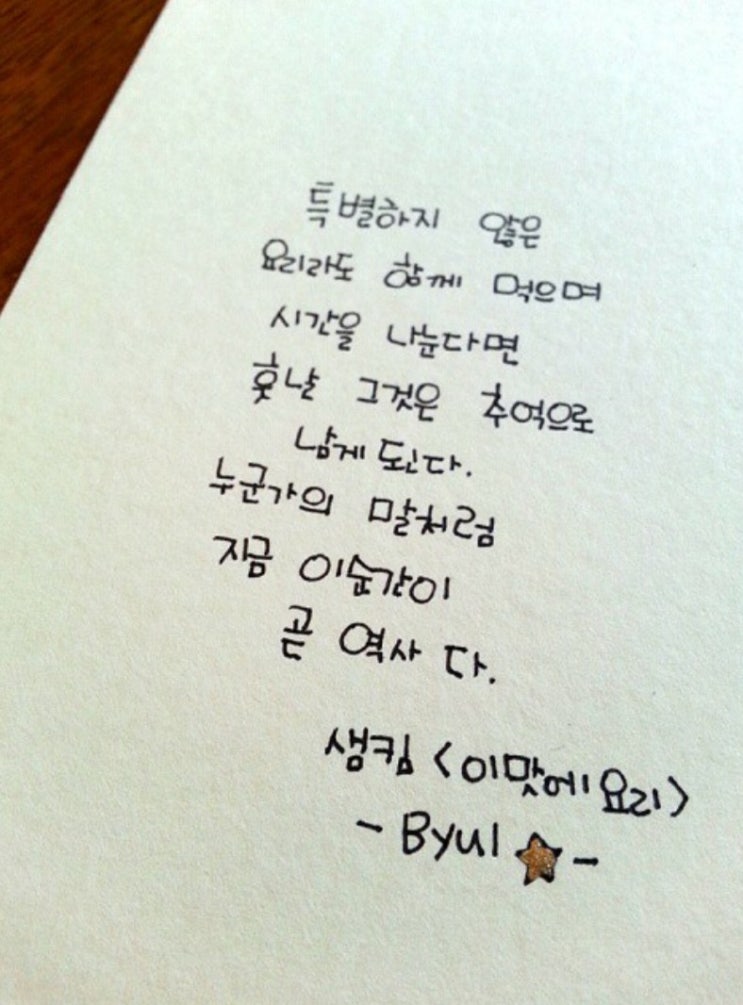 특별하지 않은
요리라도 함께 먹으며
시간을 나눈다면
훗날 그것은 추억으로
남게 된다.
누군가의 말처럼
지금 이순간이
곧 역사 다.
샘킴 <이맛에요리>
- Byul ★ -